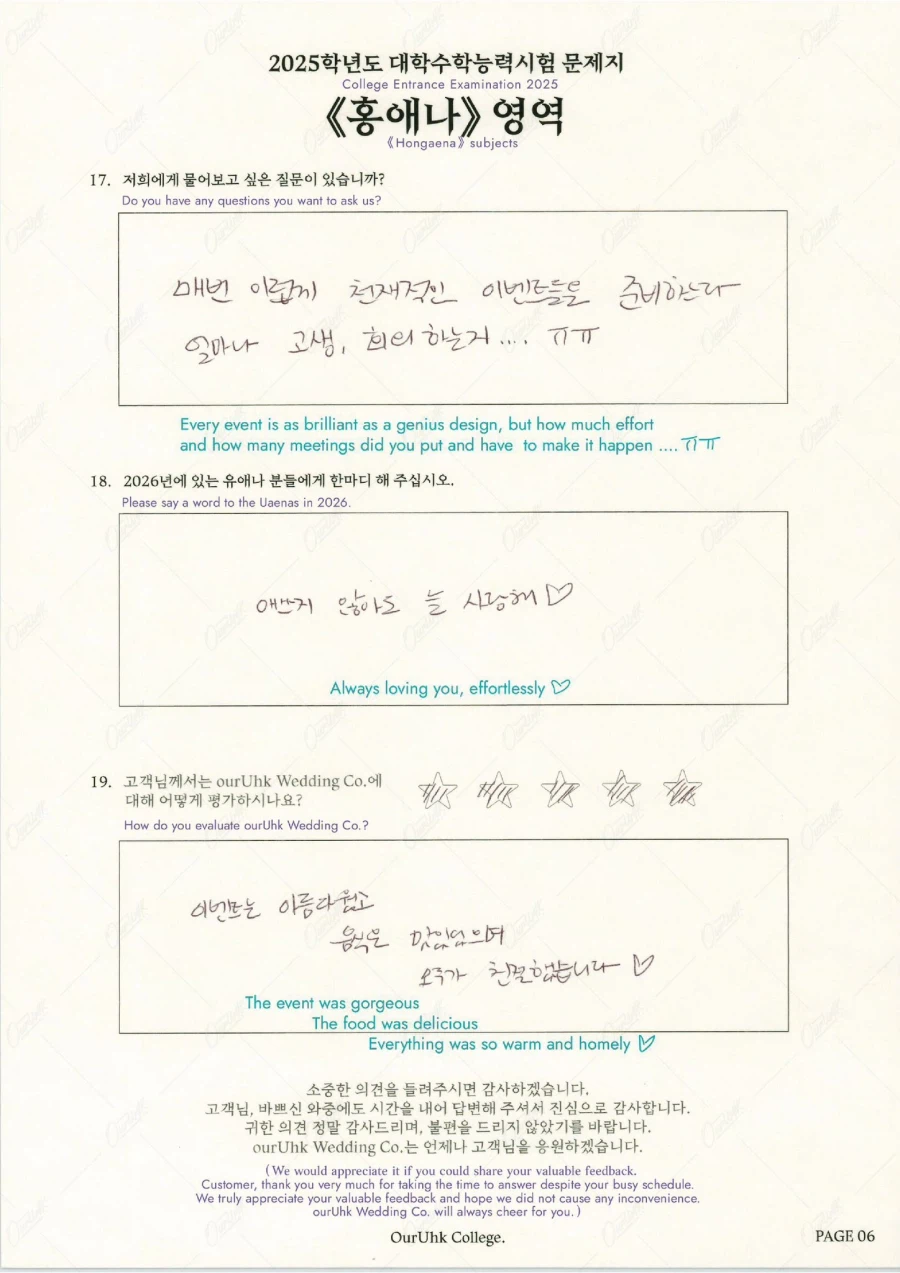 2025학년도 대학수학능력시험 문제지
College Entrance Examination 2025
《홍애나》 영역
《Hongaena》 subjects
17. 저희에게 물어보고 싶은 질문이 있습니까?
Do you have any questions you want to ask us?
매번 이렇게 천재적인 이벤트들을 준비하느라
얼마나 고생, 회의 하는지.... ㅠㅠ
Every event is as brilliant as a genius design, but how much effort
and how many meetings did you put and have to make it happen .... ㅠㅠ
18. 2026년에 있는 유애나 분들에게 한마디 해 주십시오.
Please say a word to the Uaenas in 2026.
애쓰지 않아도 늘 사랑해♡
Always loving you, effortlessly ♡
19. 고객님께서는 ourUhk Wedding Co.에
대해 어떻게 평가하시나요?
How do you evaluate ourUhk Wedding Co.?
이벤트는 아름다웠고
음식은 맛있었으며
모두가 친절했습니다 ♡
The event was gorgeous
The food was delicious
Everything was so warm and homely ♡
소중한 의견을 들려주시면 감사하겠습니다.
고객님, 바쁘신 와중에도 시간을 내어 답변해 주셔서 진심으로 감사합니다.
귀한 의견 정말 감사드리며, 불편을 드리지 않았기를 바랍니다.
ourUhk Wedding Co.는 언제나 고객님을 응원하겠습니다.
(We would appreciate it if you could share your valuable feedback.
Customer, thank you very much for taking the time to answer despite your busy schedule.
We truly appreciate your valuable feedback and hope we did not cause any inconvenience.
ourUhk Wedding Co. will always cheer for you.)
OurUhk College.
PAGE 06